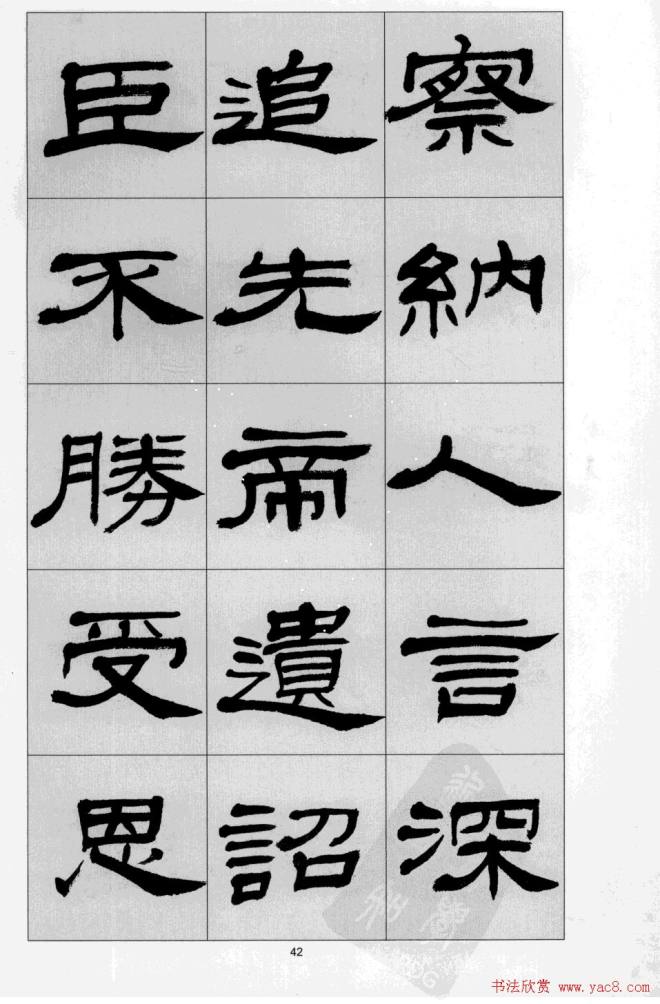 察納人言深
追先帝遺詔
臣不勝受恩
42
书法欣赏 www.yac8.com